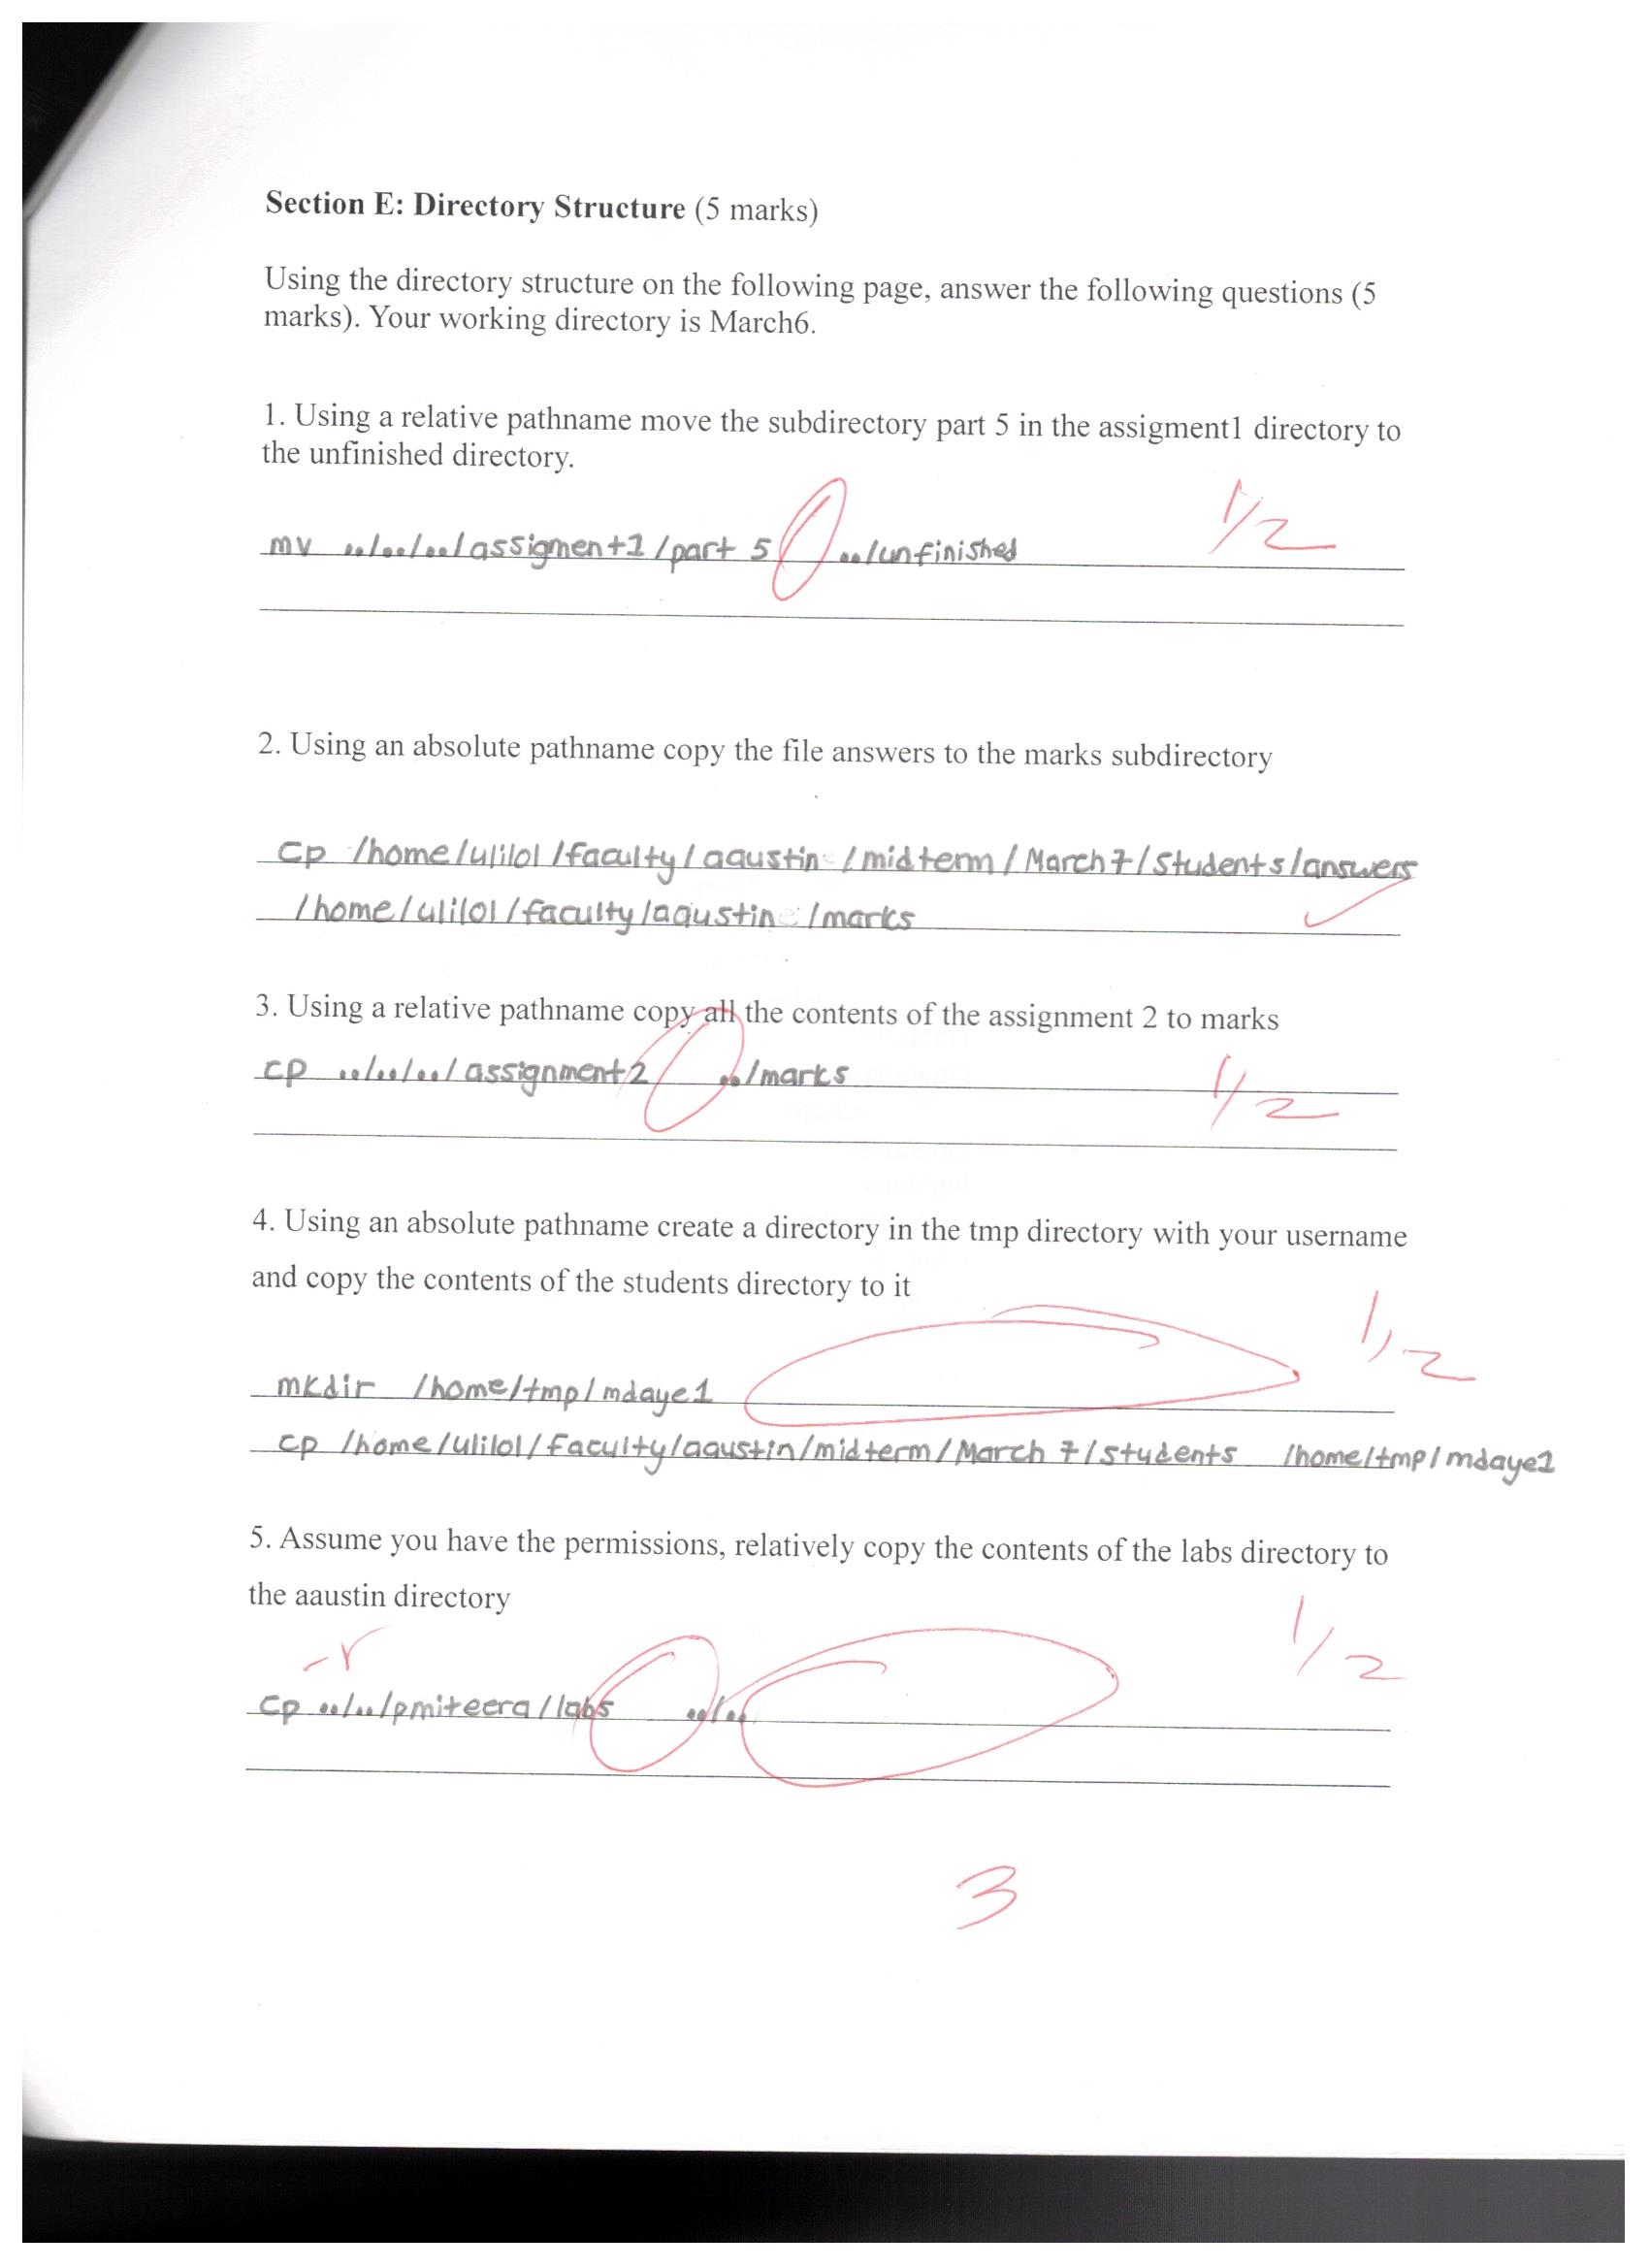 Section E: Directory Structure (5 marks)
Using the directory structure on the following page, answer the following questions (5
marks). Your working directory is March6.
1. Using a relative pathname move the subdirectory part 5 in the assigment1 directory to
the unfinished directory.
1/2
mv ../../../assigment1/part 5 ../unfinished
2. Using an absolute pathname copy the file answers to the marks subdirectory
cp /home/uli101/faculty/aaustin/midterm/March7/students/answers
/home/uli101/faculty/aaustin/marks
3. Using a relative pathname copy all the contents of the assignment 2 to marks
cp ../../../assignment2 ../marks
1/2
4. Using an absolute pathname create a directory in the tmp directory with your username
and copy the contents of the students directory to it
1/2
mkdir /home/tmp/mdaye1
cp /home/uli101/faculty/aaustin/midterm/March 7/students /home/tmp/mdaye1
5. Assume you have the permissions, relatively copy the contents of the labs directory to
the aaustin directory
1/2
-r
cp ../../pmiteera/labs ../..
3